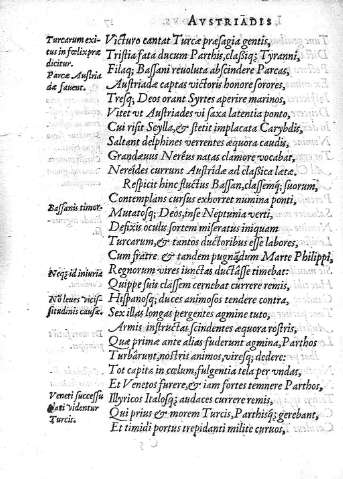 AVSTRIADIS
Turcarum exi-
tus infœlix præ
dicitur.
Parcæ Austria
dæ fauent.
Bassanis timor.
Neq; id iniuria
Nõ leues vicis-
situdinis causæ.
Veneti successu
elati videntur
Turcis.
Victuro cantat Turcæ præsagia gentis,
Tristia fata ducum Parthis, classiq; Tyranni,
Filaq; Bassani reuoluta abscindere Parcas,
Austriadæ captas victoris honore sorores,
Tresq; Deos orant Syrtes aperire marinos,
Vitet vt Austriades vi saxa latentia ponto,
Cui risit Scylla, & stetit implacata Carybdis,
Saltant delphines verrentes æquora caudis,
Grandæuus Nereus natas clamore vocabat,
Nereides currunt Austridæ ad classica lætæ.
Respicit hinc fluctus Bassan, classemq; suorum,
Contemplans cursus exhorret numina ponti,
Mutatosq; Deos, inse Neptunia verti,
Defixis oculis sortem miseratus iniquam
Turcarum, & tantos ductoribus esse labores,
Cum fratre, & tandem pugnãdum Marte Philippi,
Regnorum vires iunctas ductasse timebat:
Quippe suis classem cernebat currere remis,
Hispanosq; duces animosos tendere contra,
Sex illas longas pergentes agmine tuto,
Armis instructas scindentes æquora rostris,
Quæ prima ante alias fuderunt agmina, Parthos
Turbârunt, nostris animos, viresq; dedere:
Tot capita in cœlum, fulgentia tela per vndas,
Et Venetos furere, & iam sortes temnere Parthos,
Illyricos Italosq; audaces currere remis,
Qui prius & morem Turcis, Parthisq; gerebant,
Et timidi portus trepidanti milite curuos,